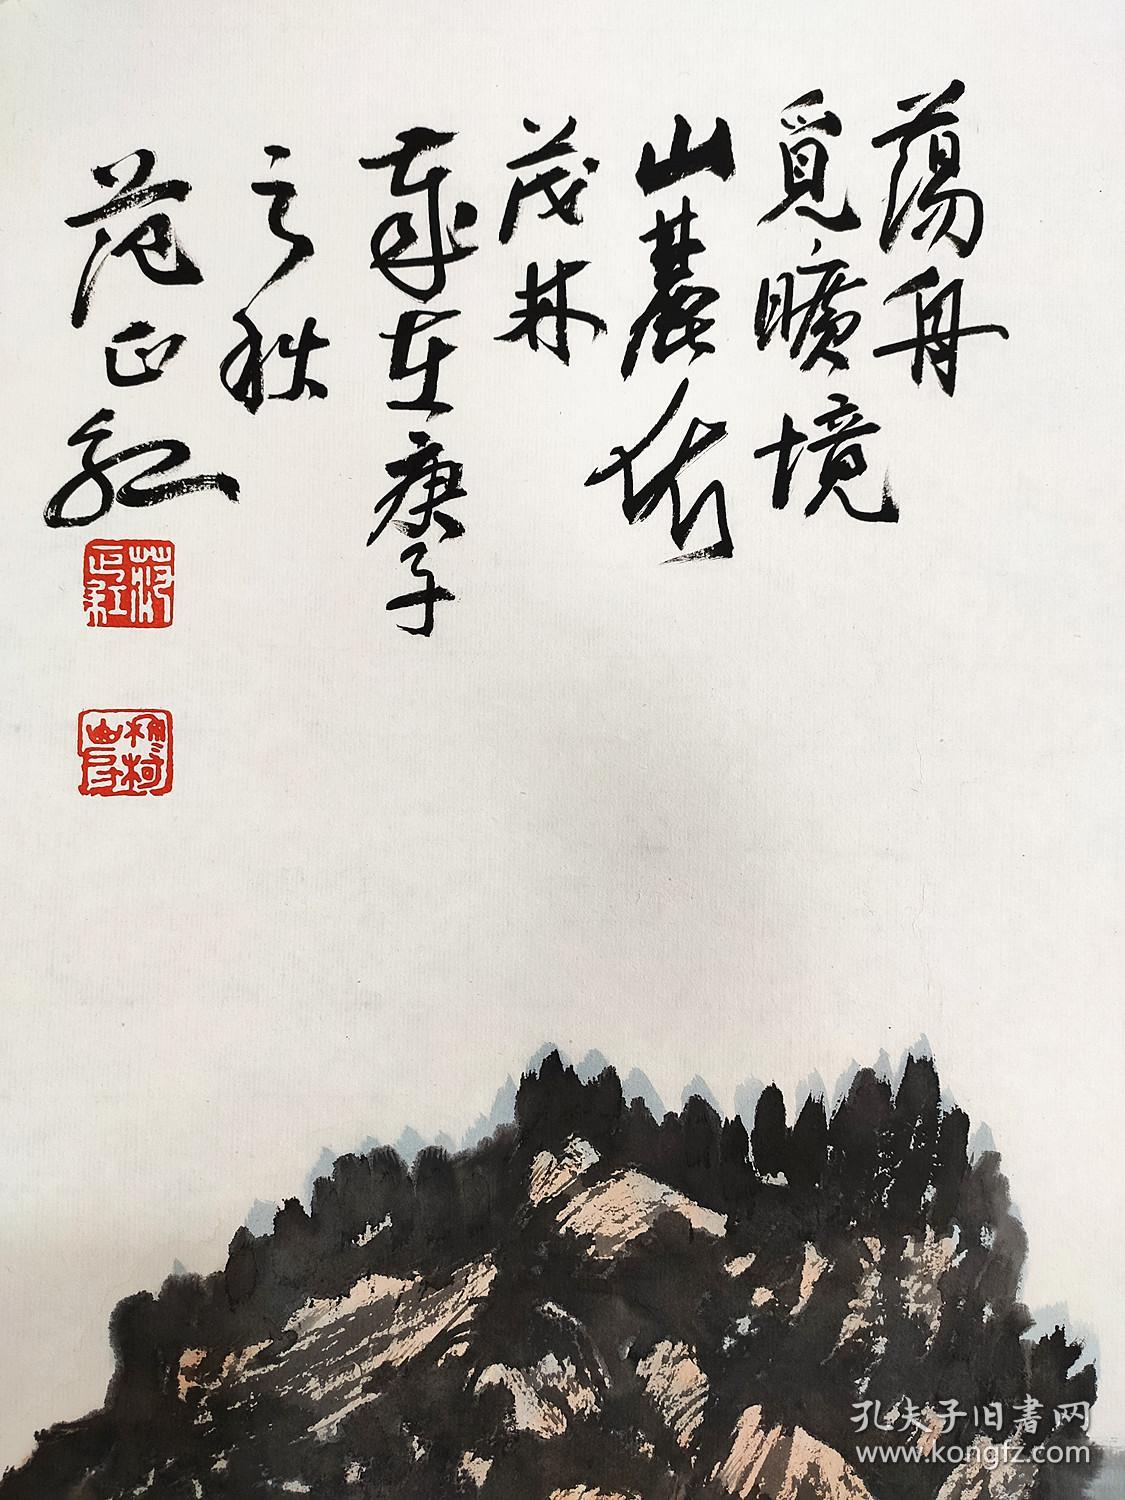 蕩舟
覓曠境
山麓依
茂林
歲在庚子
之秋
范正紅
范正紅
孔夫子旧書网
www.kongfz.com